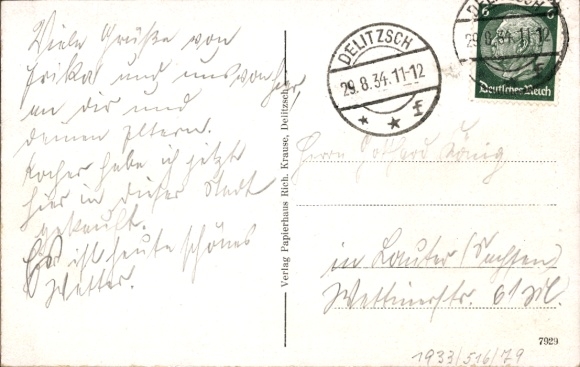 Viele Grüße von
Erika und uns von hier,
an dir und
deinen Eltern.
habe ich jetzt
hier in dieser Stadt
gekauft.
Es ist heute schönes
Wetter.
Verlag Papierhaus Rich. Krause, Delitzsch
DELITZSCH
29.8.34.11-12
f
DELITZSCH
29.8.34.11-12
f
6 6
Deutsches Reich
Herrn Gotthard König
in Lauter (Sachsen)
Wettinerstr. 61 M.
7929
1933/516/79